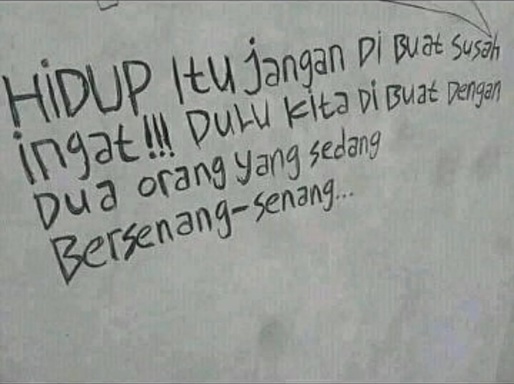 HiDUP Itu jangan Di Buat Susah
ingat!!! DuLu Kita Di Buat Dengan
Dua orang yang sedang
Bersenang-senang...